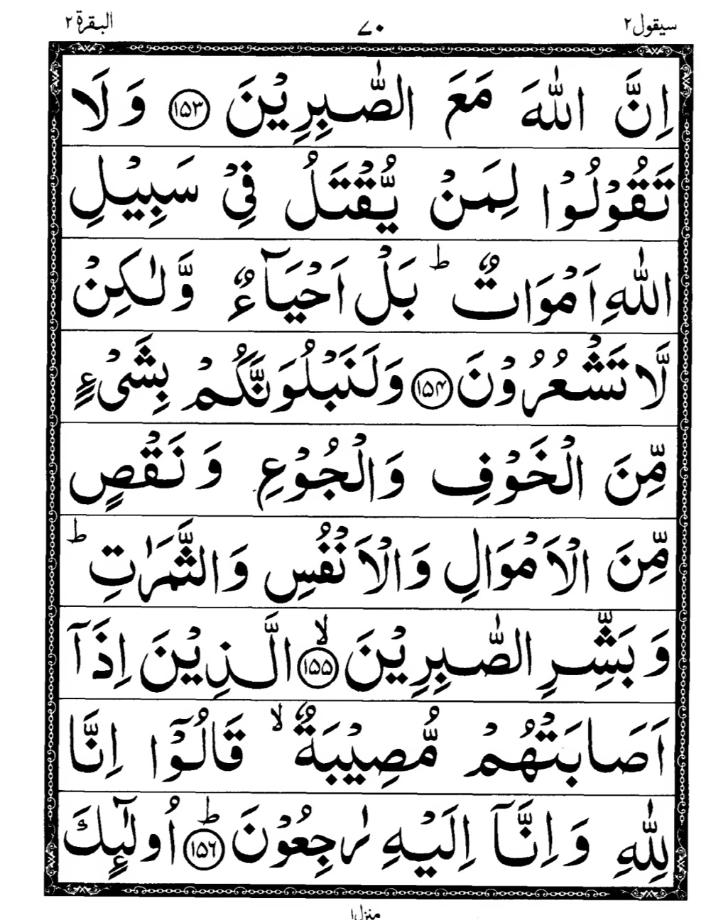 سیقول ۲
۷۰
البقرة ۲
اِنَّ اللّٰهَ مَعَ الصّٰبِرِيْنَ ۝۱۵۳ وَلَا
تَقُوْلُوْا لِمَنْ يُّقْتَلُ فِيْ سَبِيْلِ
اللّٰهِ اَمْوَاتٌ ؕ بَلْ اَحْيَآءٌ وَّلٰكِنْ
لَّا تَشْعُرُوْنَ ۝۱۵۴ وَلَنَبْلُوَنَّكُمْ بِشَيْءٍ
مِّنَ الْخَوْفِ وَالْجُوْعِ وَنَقْصٍ
مِّنَ الْاَمْوَالِ وَالْاَنْفُسِ وَالثَّمَرٰتِ ؕ
وَبَشِّرِ الصّٰبِرِيْنَ ۙ۝۱۵۵ الَّذِيْنَ اِذَآ
اَصَابَتْهُمْ مُّصِيْبَةٌ ۙ قَالُوْٓا اِنَّا
لِلّٰهِ وَاِنَّآ اِلَيْهِ رٰجِعُوْنَ ؕ۝۱۵۶ اُولٰٓئِكَ
منزل ۱